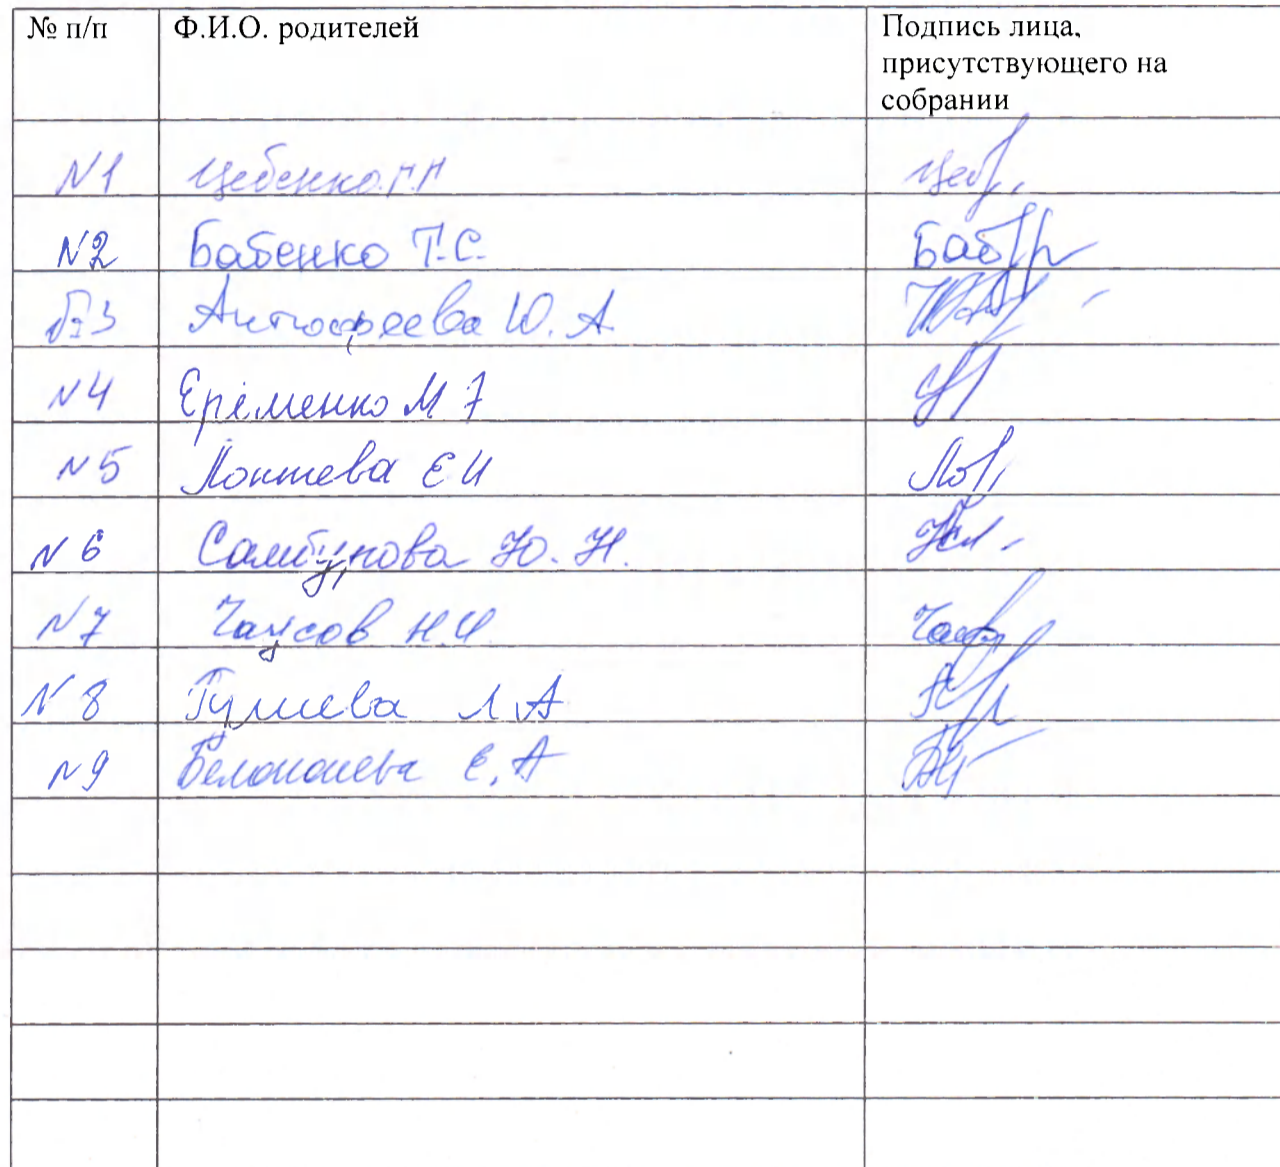 № п/п Ф.И.О. родителей Подпись лица,
присутствующего на
собрании
N1 Цебенко Г.П
N2 Бабенко Т.С. Баб
3 Антюфеева Ю.А
N4 Ерёменко М
N5 Локтева Е И
N6 Самбунова Ю.Н.
N7 Чаусов Н.И
N8 Л.А
N9 Е.А